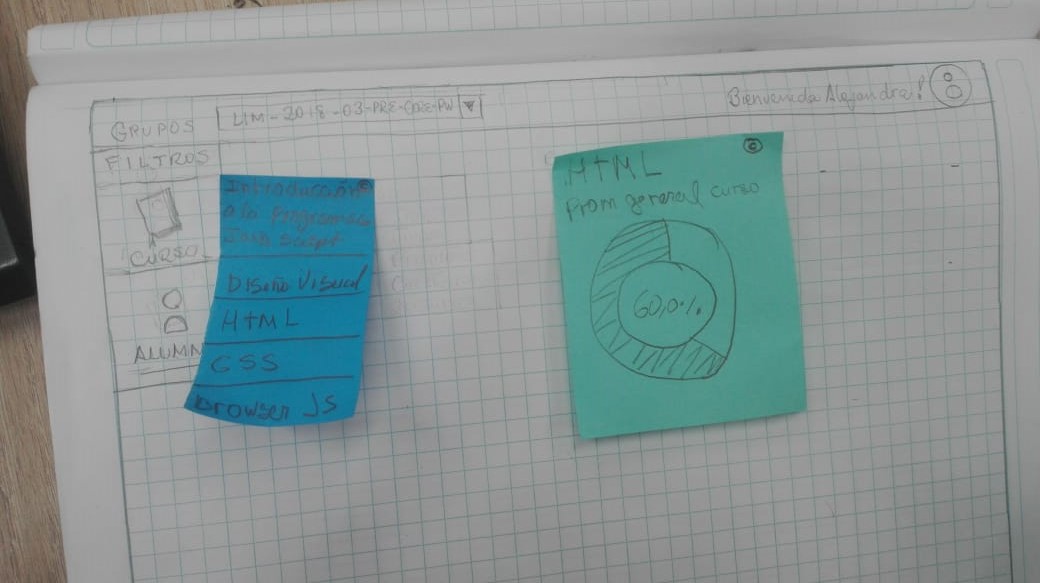 GRUPOS
LIM-2018-03-PRE-CORE-PW
Bienvenida Alejandra!
FILTROS
CURSO
ALUMN
Introducción
a la Programa
Java Script
Diseño Visual
HTML
CSS
Browser JS
©
HTML
Prom general curso
60,0%